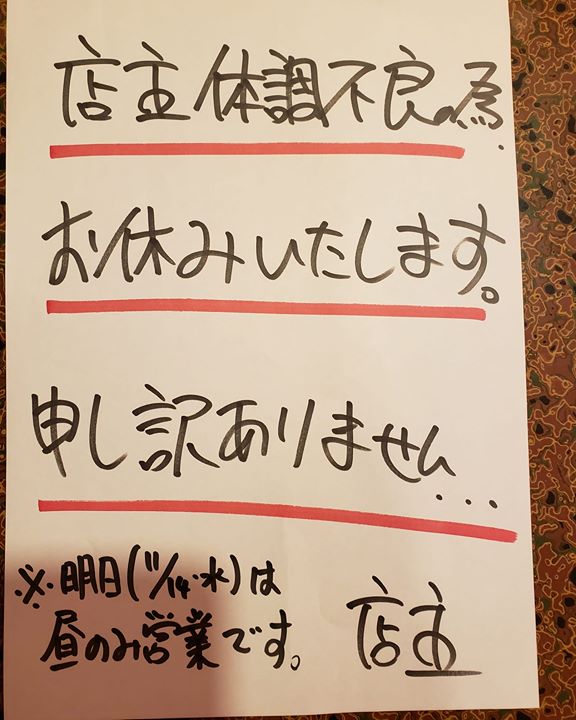 店主体調不良の為.
お休みいたします。
申し訳ありません...
※明日(11/14・水)は
昼のみ営業です。
店主